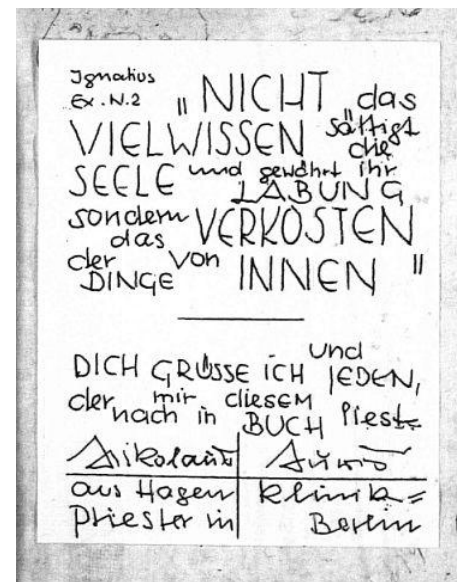 Ignatius
Ex. N.2 „NICHT das
VIELWISSEN sättigt die
SEELE und gewährt ihr LABUNG
sondern das VERKOSTEN
der DINGE von INNEN"
DICH GRÜSSE iCH und JEDEN,
der nach mir in diesem BUCH liest
Nikolaus
aus Hagen Klinik=
Priester in Berlin